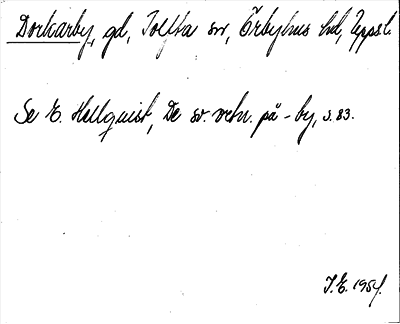 Dorkarby, gd, Tolfta sn, Örbyhus hd, Uppsl.
Se E. Hellquist, De sv. ortn. på -by, s. 83.
I.E. 1954.